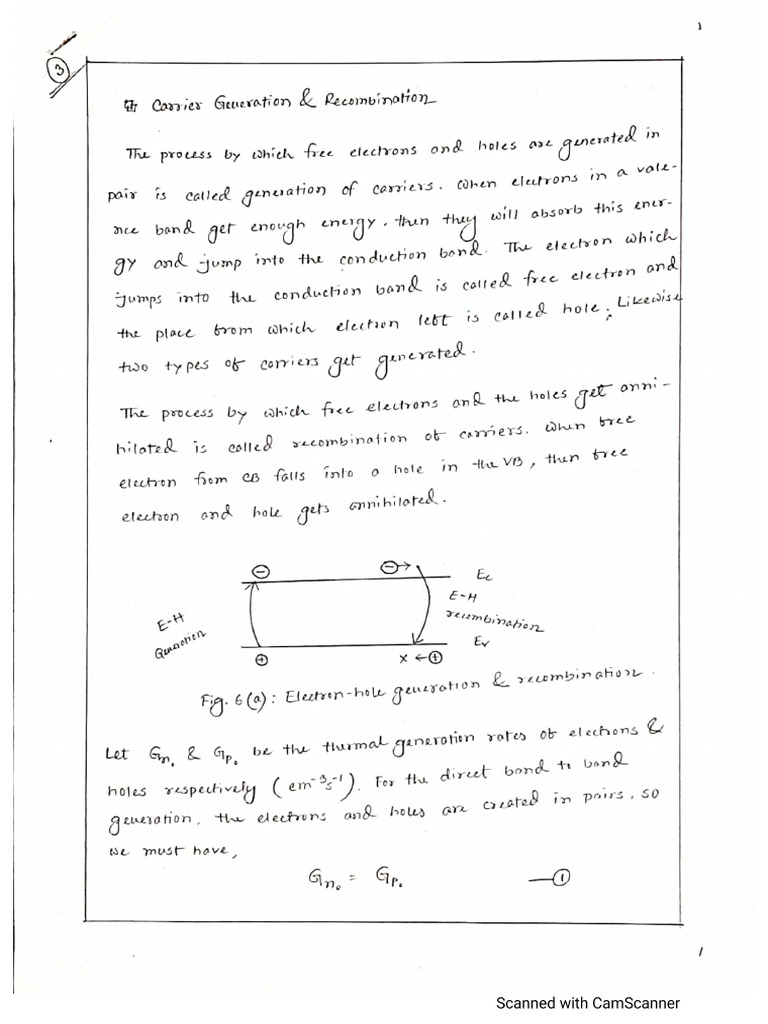 1
3
Carrier Generation & Recombination
The process by which free electrons and holes are generated in
pair is called generation of carriers. When electrons in a vale-
nce band get enough energy, then they will absorb this ener-
gy and jump into the conduction band. The electron which
jumps into the conduction band is called free electron and
the place from which electron left is called hole; Likewise
two types of carriers get generated.
The process by which free electrons and the holes get anni-
hilated is called recombination of carriers. When free
electron from CB falls into a hole in the VB, then free
electron and hole gets annihilated.
Ec
E-H
recombination
Ev
E-H
Genration
X
Fig. 6(a): Electron-hole generation & recombination.
Let Gn₀ & Gp₀ be the thermal generation rates of electrons &
holes respectively (cm⁻³s⁻¹). For the direct band to band
generation, the electrons and holes are created in pairs, so
we must have,
Gn₀ = Gp₀ —①
1
Scanned with CamScanner